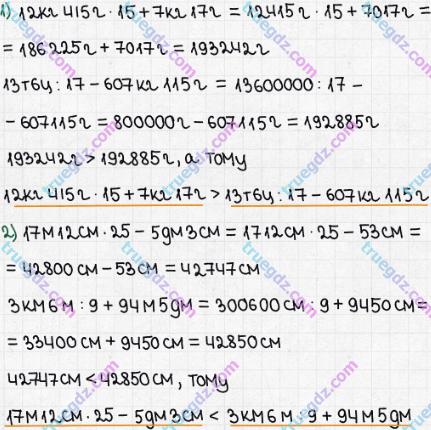 1) 12кг 415г · 15 + 7кг 17г = 12415г · 15 + 7017г =
= 186225г + 7017г = 193242г
13т6ц : 17 - 607кг 115г = 13600000 : 17 -
- 607115г = 800000г - 607115г = 192885г
193242г > 192885г, а тому
12кг 415г · 15 + 7кг 17г > 13т6ц : 17 - 607кг 115г
2) 17м12см · 25 - 5дм3см = 1712см · 25 - 53см =
= 42800см - 53см = 42747см
3км6м : 9 + 94м5дм = 300600см : 9 + 9450см =
= 33400см + 9450см = 42850см
42747см < 42850см, тому
17м12см · 25 - 5дм3см < 3км6м : 9 + 94м5дм